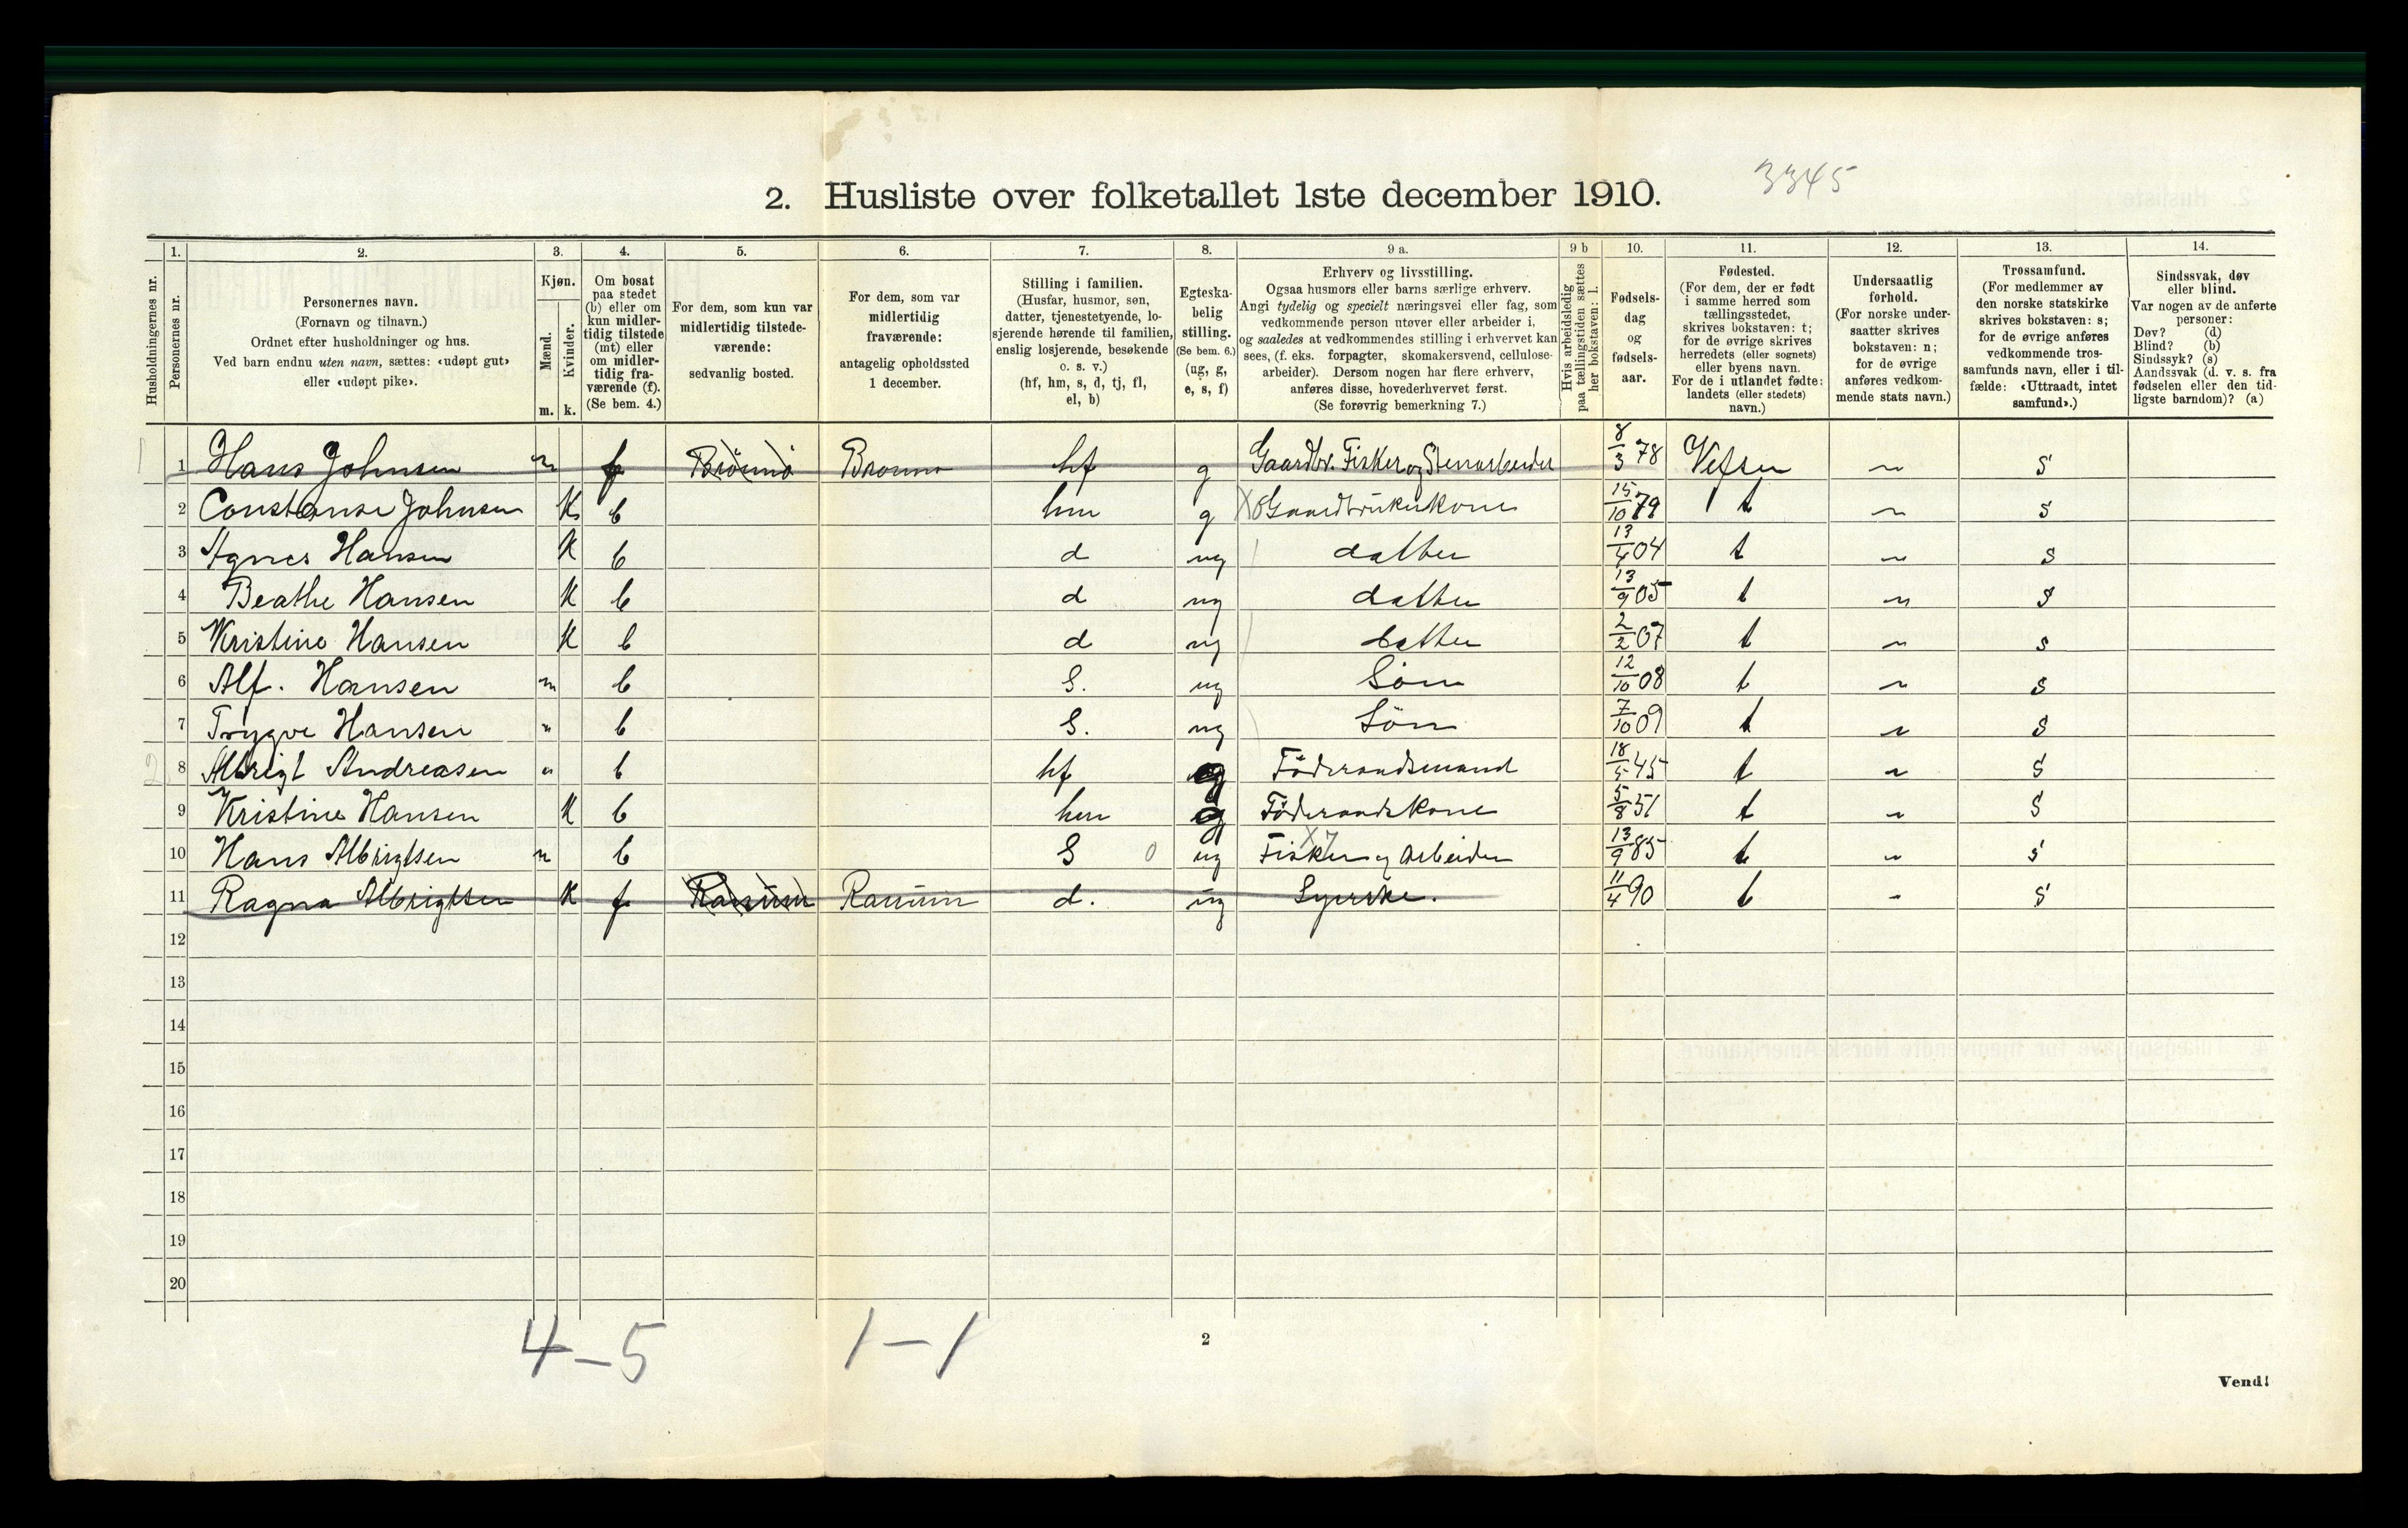 2. Husliste over folketallet 1ste december 1910.
3345
1. 2. 3. 4. 5. 6. 7. 8. 9 a. 9 b 10. 11. 12. 13. 14.
Husholdningernes nr.
Personernes nr.
Personernes navn.
(Fornavn og tilnavn.)
Ordnet efter husholdninger og hus.
Ved barn endnu uten navn, sættes: «udøpt gut»
eller «udøpt pike».
Kjøn.
Mænd.
Kvinder.
m. k.
Om bosat
paa stedet
(b) eller om
kun midler-
tidig tilstede
(mt) eller
om midler-
tidig fra-
værende (f).
(Se bem. 4.)
For dem, som kun var
midlertidig tilstede-
værende:
sedvanlig bosted.
For dem, som var
midlertidig
fraværende:
antagelig opholdssted
1 december.
Stilling i familien.
(Husfar, husmor, søn,
datter, tjenestetyende, lo-
sjerende hørende til familien,
enslig losjerende, besøkende
o. s. v.)
(hf, hm, s, d, tj, fl,
el, b)
Egteska-
belig
stilling.
(Se bem. 6.)
(ug, g,
e, s, f)
Erhverv og livsstilling.
Ogsaa husmors eller barns særlige erhverv.
Angi tydelig og specielt næringsvei eller fag, som
vedkommende person utøver eller arbeider i,
og saaledes at vedkommendes stilling i erhvervet kan
sees, (f. eks. forpagter, skomakersvend, cellulose-
arbeider). Dersom nogen har flere erhverv,
anføres disse, hovederhvervet først.
(Se forøvrig bemerkning 7.)
Hvis arbeidsledig
paa tællingstiden sættes
her bokstaven: l.
Fødsels-
dag
og
fødsels-
aar.
Fødested.
(For dem, der er født
i samme herred som
tællingsstedet,
skrives bokstaven: t;
for de øvrige skrives
herredets (eller sognets)
eller byens navn.
For de i utlandet fødte:
landets (eller stedets)
navn.)
Undersaatlig
forhold.
(For norske under-
saatter skrives
bokstaven: n;
for de øvrige
anføres vedkom-
mende stats navn.)
Trossamfund.
(For medlemmer av
den norske statskirke
skrives bokstaven: s;
for de øvrige anføres
vedkommende tros-
samfunds navn, eller i til-
fælde: «Uttraadt, intet
samfund».)
Sindssvak, døv
eller blind.
Var nogen av de anførte
personer:
Døv? (d)
Blind? (b)
Sindssyk? (s)
Aandssvak (d. v. s. fra
fødselen eller den tid-
ligste barndom)? (a)
1 1 Hans Johnsen m f Brönnö Bronno hf g Gaardbr. Fisker og Stenarbeider 8/3 78 Vefsen n s
2 Constanse Johnsen K b hm g Gaardbrukerkone 15/10 79 t n s
3 Agnes Hansen K b d ug datter 13/4 04 t n s
4 Beathe Hansen K b d ug datter 13/9 05 t n s
5 Kristine Hansen K b d ug datter 2/2 07 t n s
6 Alf. Hansen m b S. ug Søn 12/10 08 t n s
7 Trygve Hansen m b S. ug Sön 7/10 09 t n s
2 8 Albrigt Andreasen m b hf g Föderaadsmand 18/5 45 t n s
9 Kristine Hansen K b hm g Föderaadskone 5/8 51 t n s
10 Hans Albrigtsen m b S 0 ug Fisker og Arbeider 13/9 85 t n s
11 Ragna Albrigtsen K f d. ug Syerske. 11/4 90 t n s
12
13
14
15
16
17
18
19
20
4-5 1-1
2
Vend!